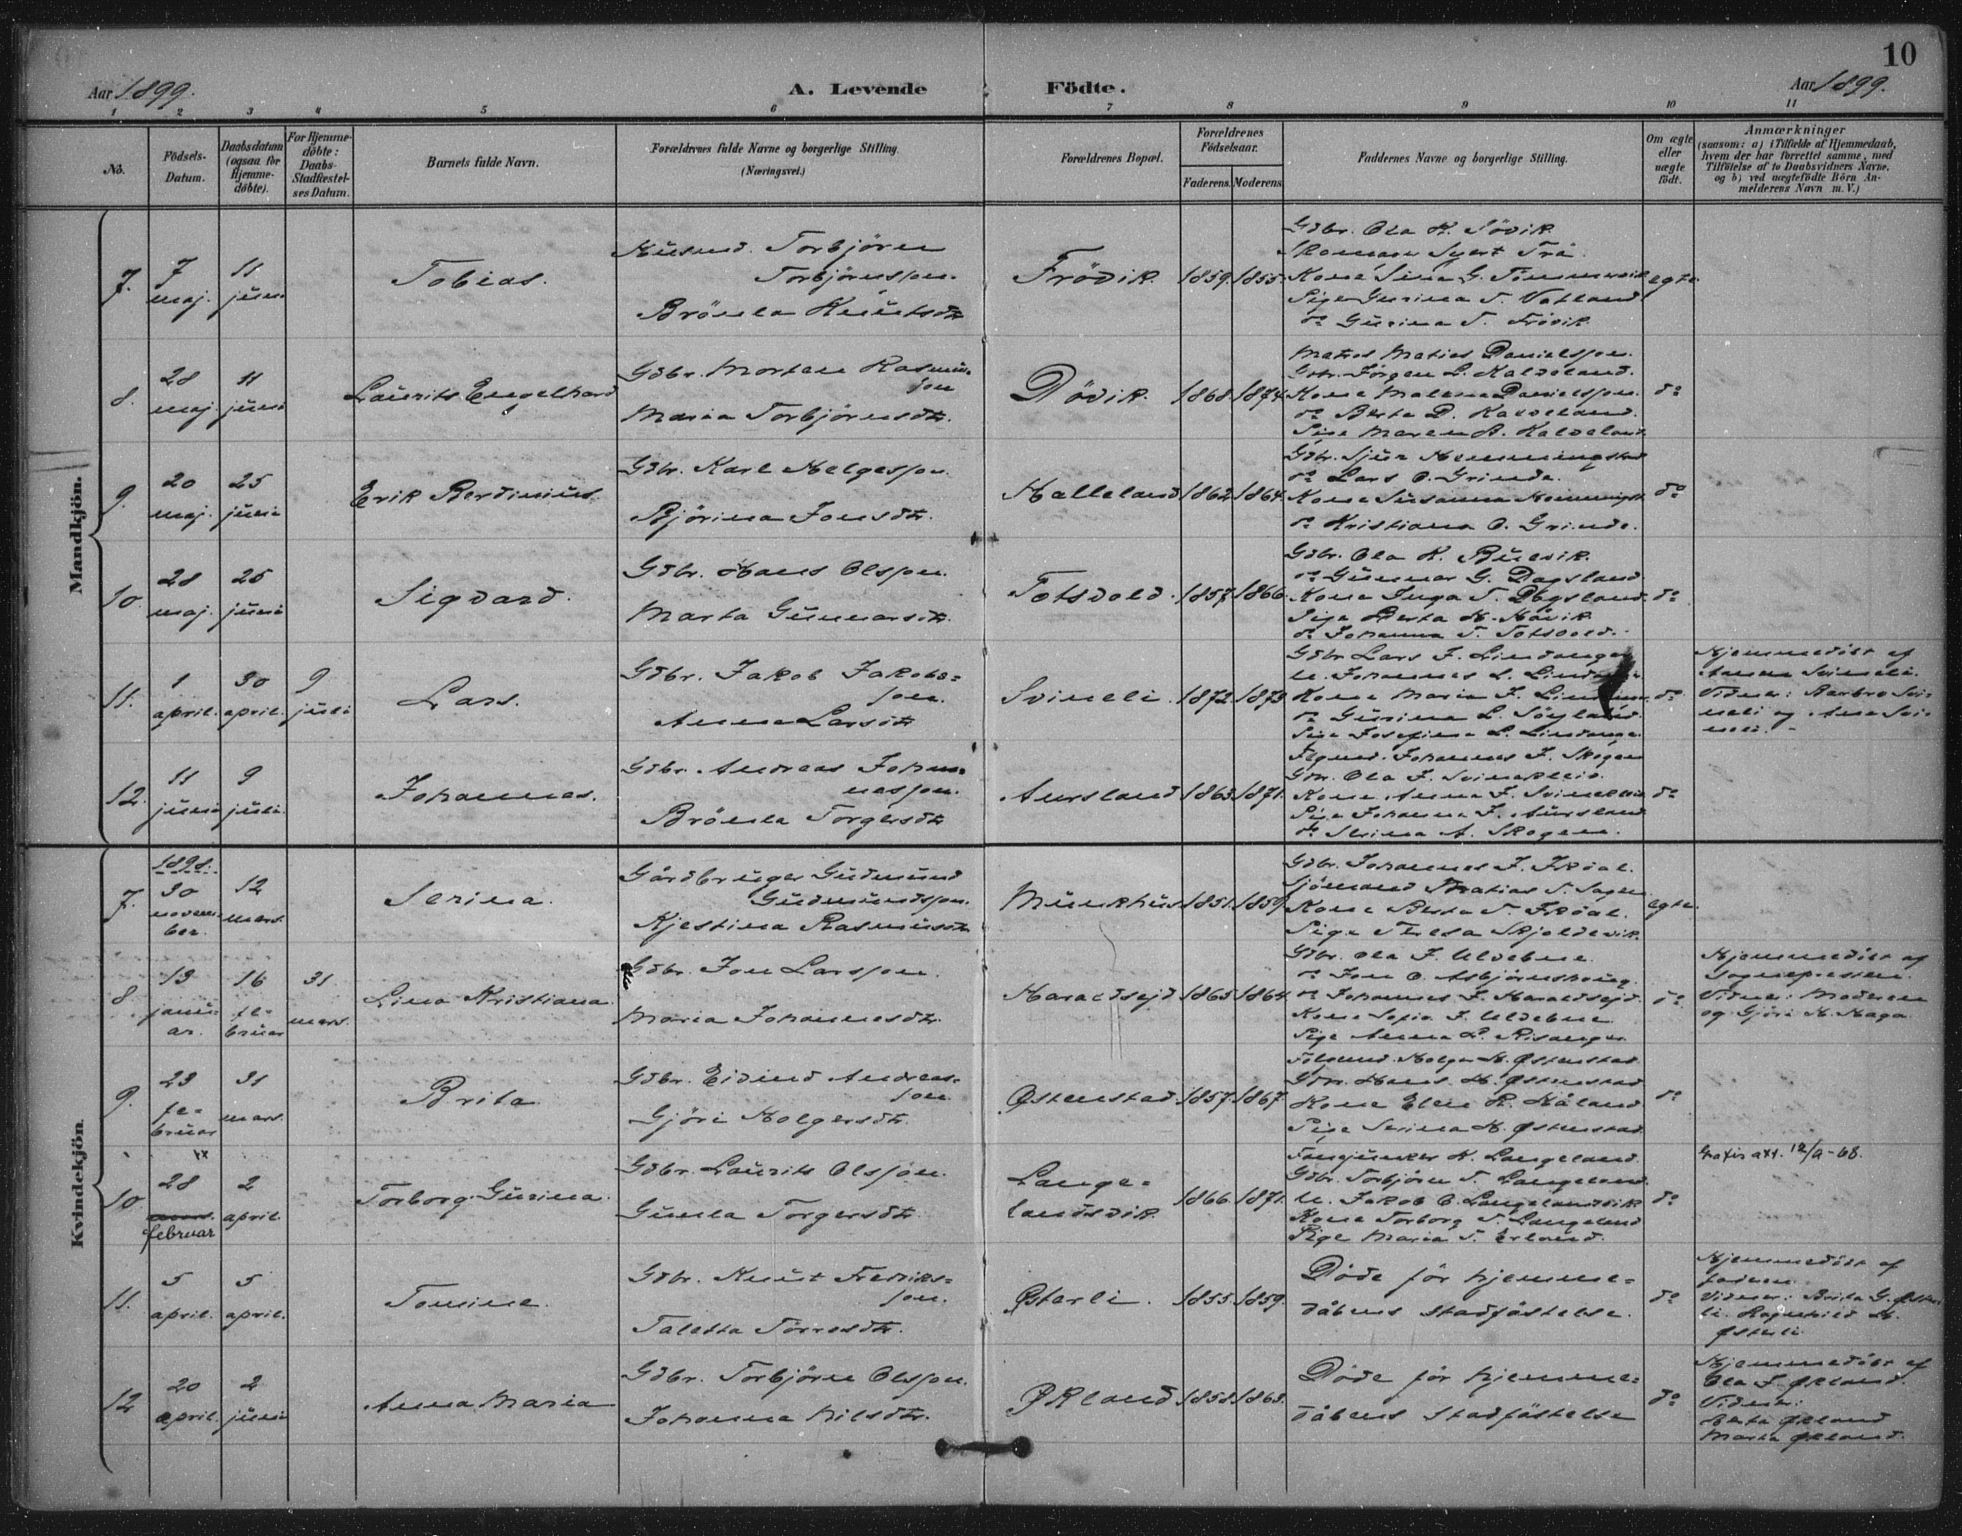 10
Aar 1899.
A. Levende Födte.
Aar 1899.
1 2 3 4 5 6 7 8 9 10 11
No.
Födsels-Datum.
Daabsdatum (ogsaa for Hjemmedöbte).
For Hjemmedöbte: Daabs-Stadfæstelses Datum.
Barnets fulde Navn.
Forældrenes fulde Navne og borgerlige Stilling (Næringsvei.)
Forældrenes Bopæl.
Forældrenes Födselsaar.
Faderens. Moderens
Faddernes Navne og borgerlige Stilling.
Om ægte eller uægte födt.
Anmærkninger
(saasom: a) i Tilfælde af Hjemmedaab, hvem der har forrettet samme, med Tilföielse af to Daabsvidners Navne, og b) ved uægtefödte Börn Anmelderens Navn m. V.)
Mandkjön.
7.
7 maj.
11 juni
Tobias.
Husmd. Torbjörn
Torbjörnsson.
Bröula Knutsdtr
Frödik
1859. 1855.
Gdbr. Ola K. Södik
Kone Sina G.
Pige Gurina T. Vatland
do Gurina T. Frövik
egte
8.
28 maj
11 juni
Laurits Engelhard
Gdbr. Morten Rasmus=
son
Maria Torbjörnsdtr.
Dödik
1868. 1874.
Matros Matias Danielsson.
Gdbr. Jörgen L. Kaldeland.
Kone Malena Danielsson.
do Berta D. Kaldeland.
Pige Maren A. Kaldeland
do
9.
20 maj.
25 juni
Erik Berdinius
Gdbr. Karl Helgesson.
Björina Jonsdtr.
Halleland
1862. 1864.
Gdbr. Sjur Hemmingstad
do Lars O. Grinde.
Kone Susanna
do Kristiana O. Grinde.
do
10
28 maj.
25 juni
Sigvard.
Gdbr. Hans Olsson.
Marta Gunnarsdtr.
Totsvold.
1857. 1866.
Gdbr. Ola K.
do Gunnar G. Dagsland
Kone Inga T. Dagsland.
Pige Berta H. Hövik
do Johanna T. Totsvold.
do
11.
1 april.
30 april.
9 juli
Lars.
Gdbr. Jakob Jakobs=
son.
Anna Larsdtr
Svineli
1872. 1873.
Gdbr Lars J. Lindanger
U. Johannes L.
Kone Maria J.
do Gurina L. Söyland.
Pige Josefine L.
do
Hjemmedöbt af
Anna Svineli.
Vidner: Barbro Svi-
neli og Ana Svi-
neli.
12.
11 juni
9 juli.
Johannes.
Gdbr. Andreas Johan=
nesson.
Bröula Torgersdtr
Aursland
1863. 1871.
Johannes J. Skogen
Gdbr. Ola J. Svinakleiv.
Kone Anna J.
Pige Johanna J. Aursland
do Serina A. Skogen.
do
Kvindekjön.
7.
1898.
30 novem-
ber
12 mars.
Serina.
Gårdbruger Gudmund
Gudmundsson.
Kjestina Rasmusdtr
Munkhus
1851. 1859
Gdbr. Johannes J.
Sjömand Matias T.
Kone Berta T.
Pige Teresa Skjoldevik
egte.
8.
13 janu-
ar.
16 fe-
bruar
31 mars.
Lina Kristiana
Gdbr. Jon Larsson.
Maria Johannesdtr.
Haraldsejd
1863. 1864.
Gdbr. Ola J. Uldebne.
do Jon O. Asbjörnshaug.
do Johannes J. Haraldsejd.
Kone Sofia J. Uldebne
Pige Anna L. Risanger
do
Hjemmedöbt af
Sognepresten.
Vidner: Moderen
og Gjöri H. Haga.
9.
23 fe-
bruar
31 mars.
Brita
Gdbr. Eivind Andreas=
son
Gjöri Holgersdtr.
Østenstad.
1857. 1867.
Holger H. Østenstad
Gdbr. Hans H. Østenstad
Kone Elen R. Håland
Pige Serina H. Østenstad
do
10
28 mars. februar
2 april.
Torborg Gurina.
Gdbr. Laurits Olsson.
Gunla Torgersdtr.
Lange=
landsvik
1866. 1871.
K. Langeland
Gdbr. Torbjörn T. Langeland
U. Jakob O. Langelandsvik
Kone Torborg T. Langeland
Pige Maria T.
do
Gratis att. 12/9-68.
11.
5 april.
5 april.
Tomine.
Gdbr. Knut Fredriks=
son.
Taletta Torresdtr.
Østerli.
1855. 1859.
Døde før hjemme=
dåbens stadfæstelse.
do
Hjemmedöbt af
faderen.
Vidner: Brita G. Øster-
li. Ragnhild
Østerli
12
20 april.
2 juni
Anna Maria
Gdbr. Torbjörn Olsson.
Johanna Nilsdtr.
Økland
1858. 1863.
Døde før hjemme=
dåbens stadfæstelse
do
Hjemmedöbt af
Ola T. Økland.
Vidner:
Berta Økland
Marta Økland.